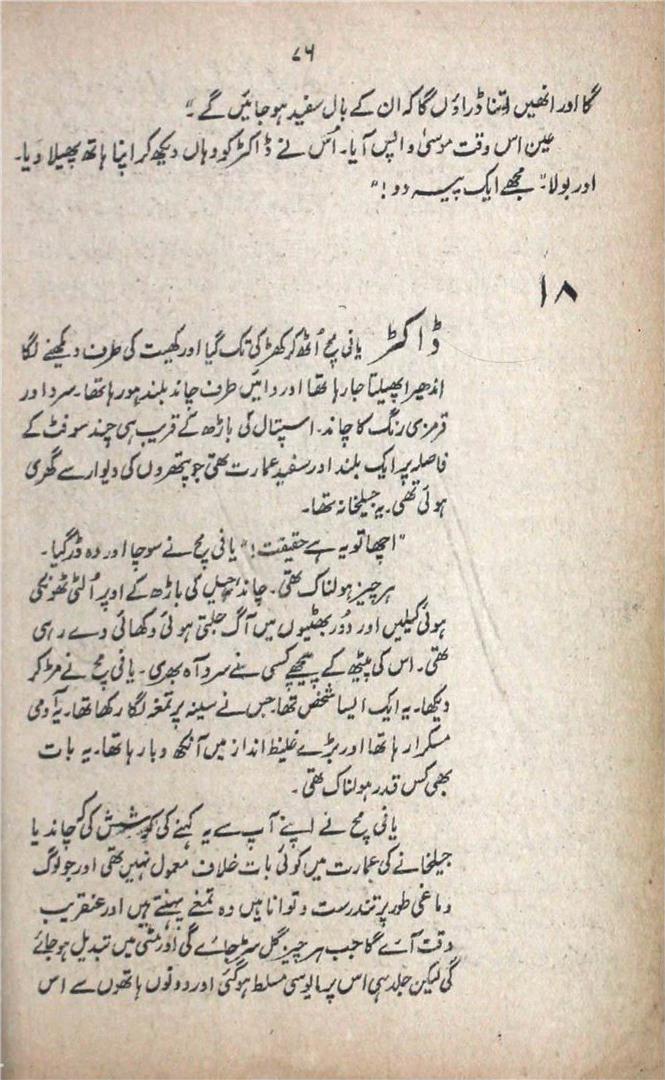 ۷۶
گا اور انھیں اتنا ڈراؤں گا کہ ان کے بال سفید ہو جائیں گے۔"
عین اس وقت موسیٰ واپس آیا۔ اُس نے ڈاکٹر کو وہاں دیکھ کر اپنا ہاتھ پھیلا دیا۔
اور بولا۔ "مجھے ایک پیسہ دو!"
۱۸
ڈاکٹر یانی مچ اُٹھ کر کھڑکی تک گیا اور کھیت کی طرف دیکھنے لگا
اندھیرا پھیلتا جا رہا تھا اور دائیں طرف چاند بلند ہو رہا تھا۔ سرد اور
قرمزی رنگ کا چاند۔ اسپتال کی باڑھ کے قریب ہی چند سو فٹ کے
فاصلہ پر ایک بلند اور سفید عمارت تھی جو پتھروں کی دیوار سے گھری
ہوئی تھی۔ یہ جیلخانہ تھا۔
"اچھا تو یہ ہے حقیقت!" یانی مچ نے سوچا اور وہ ڈر گیا۔
ہر چیز ہولناک تھی۔ چاند، جیل کی باڑھ کے اوپر اُلٹی ٹھونکی
ہوئی کیلیں اور دُور بھٹیوں میں آگ جلتی ہوئی دکھائی دے رہی
تھی۔ اس کی پیٹھ کے پیچھے کسی نے سرد آہ بھری۔ یانی مچ نے مڑ کر
دیکھا۔ یہ ایک ایسا شخص تھا جس نے سینہ پر تمغہ لگا رکھا تھا۔ یہ آدمی
مسکرا رہا تھا اور بڑے غلیظ انداز میں آنکھ دبا رہا تھا۔ یہ بات
بھی کس قدر ہولناک تھی۔
یانی مچ نے اپنے آپ سے یہ کہنے کی کوشش کی کہ چاند یا
جیلخانے کی عمارت میں کوئی بات خلاف معمول نہیں تھی اور جو لوگ
دماغی طور پر تندرست و توانا ہیں وہ تمغے پہنتے ہیں اور عنقریب
وقت آئے گا جب ہر چیز گل سڑ جائے گی اور مٹی میں تبدیل ہو جائے
گی لیکن جلد ہی اس پر مایوسی مسلط ہو گئی اور دونوں ہاتھوں سے اس